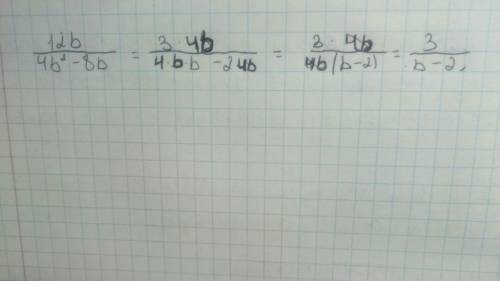 12b/(4b² - 8b) = (3 · 4b)/(4 · b · b - 2 4b) = (3 · 4b)/(4b(b-2)) = 3/(b-2),